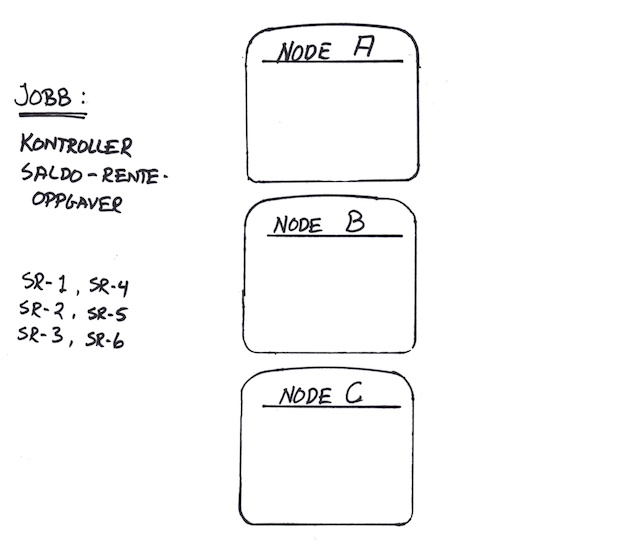 JOBB :
KONTROLLER
SALDO-RENTE-
OPPGAVER
SR-1, SR-4
SR-2, SR-5
SR-3, SR-6
NODE A
NODE B
NODE C